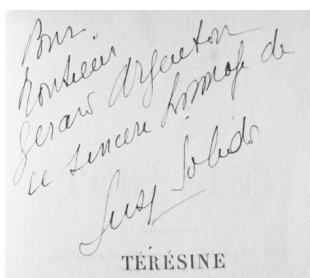 Pour
Monsieur
Gerard Argenton
ce sincere hommage de
Susy Solidor
TÉRÉSINE